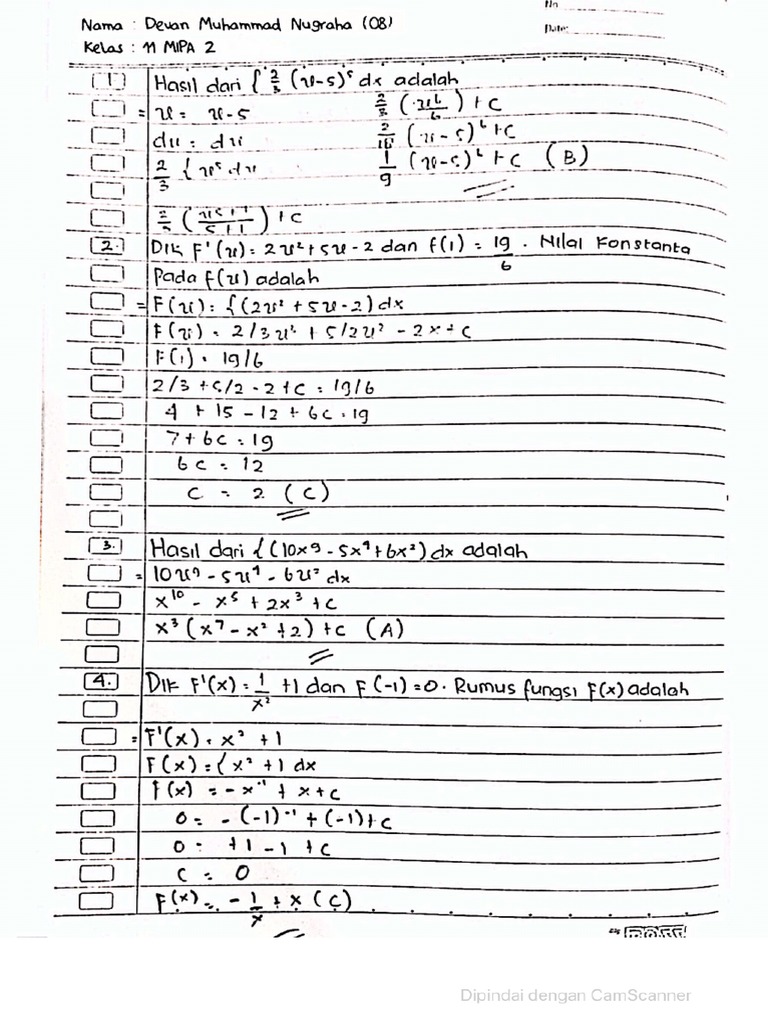 No
Nama : Devan Muhammad Nugraha (08)
Date:
Kelas : 11 MIPA 2
1 Hasil dari ∫ 2/3 (x-5)⁵ dx adalah
= u = x-5 2/3 (u⁶/6) + C
du = dx 2/18 (x-5)⁶ + C
2/3 ∫ u⁵ du 1/9 (x-5)⁶ + C (B)
2/3 (u⁵⁺¹/5+1) + C
2. Dik F'(x) = 2x²+5x-2 dan f(1) = 19/6 . Nilai Konstanta
Pada f(x) adalah
= F(x) = ∫(2x² + 5x - 2) dx
F(x) = 2/3x³ + 5/2x² - 2x + C
F(1) = 19/6
2/3 + 5/2 - 2 + C = 19/6
4 + 15 - 12 + 6C = 19
7 + 6C = 19
6C = 12
C = 2 (C)
3. Hasil dari ∫(10x⁹ - 5x⁴ + 6x²) dx adalah
= 10x⁹ - 5x⁴ - 6x² dx
x¹⁰ - x⁵ + 2x³ + C
x³ (x⁷ - x² + 2) + C (A)
4. Dik F'(x) = 1/x² + 1 dan F(-1) = 0 . Rumus fungsi F(x) adalah
= F'(x) = x² + 1
F(x) = ∫ x² + 1 dx
F(x) = - x⁻¹ + x + C
0 = - (-1)⁻¹ + (-1) + C
0 = +1 - 1 + C
C = 0
F(x) = - 1/x + x (C)
Dipindai dengan CamScanner